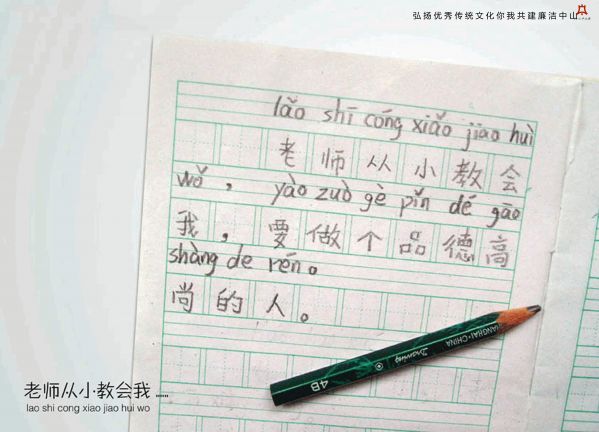 弘扬优秀传统文化你我共建廉洁中山
lǎo shī cóng xiǎo jiāo huì
老师从小教会
wǒ, yào zuò gè pǐn dé gāo
我，要做个品德高
shàng de rén。
尚的人。
SHANGHAI·CHINA
Drawing
4B
老师从小教会我 ......
lao shi cong xiao jiao hui wo